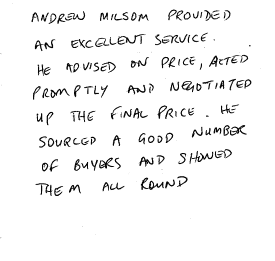 ANDREW MILSOM PROVIDED
AN EXCELLENT SERVICE.
HE ADVISED ON PRICE, ACTED
PROMPTLY AND NEGOTIATED
UP THE FINAL PRICE. HE
SOURCED A GOOD NUMBER
OF BUYERS AND SHOWED
THEM ALL ROUND